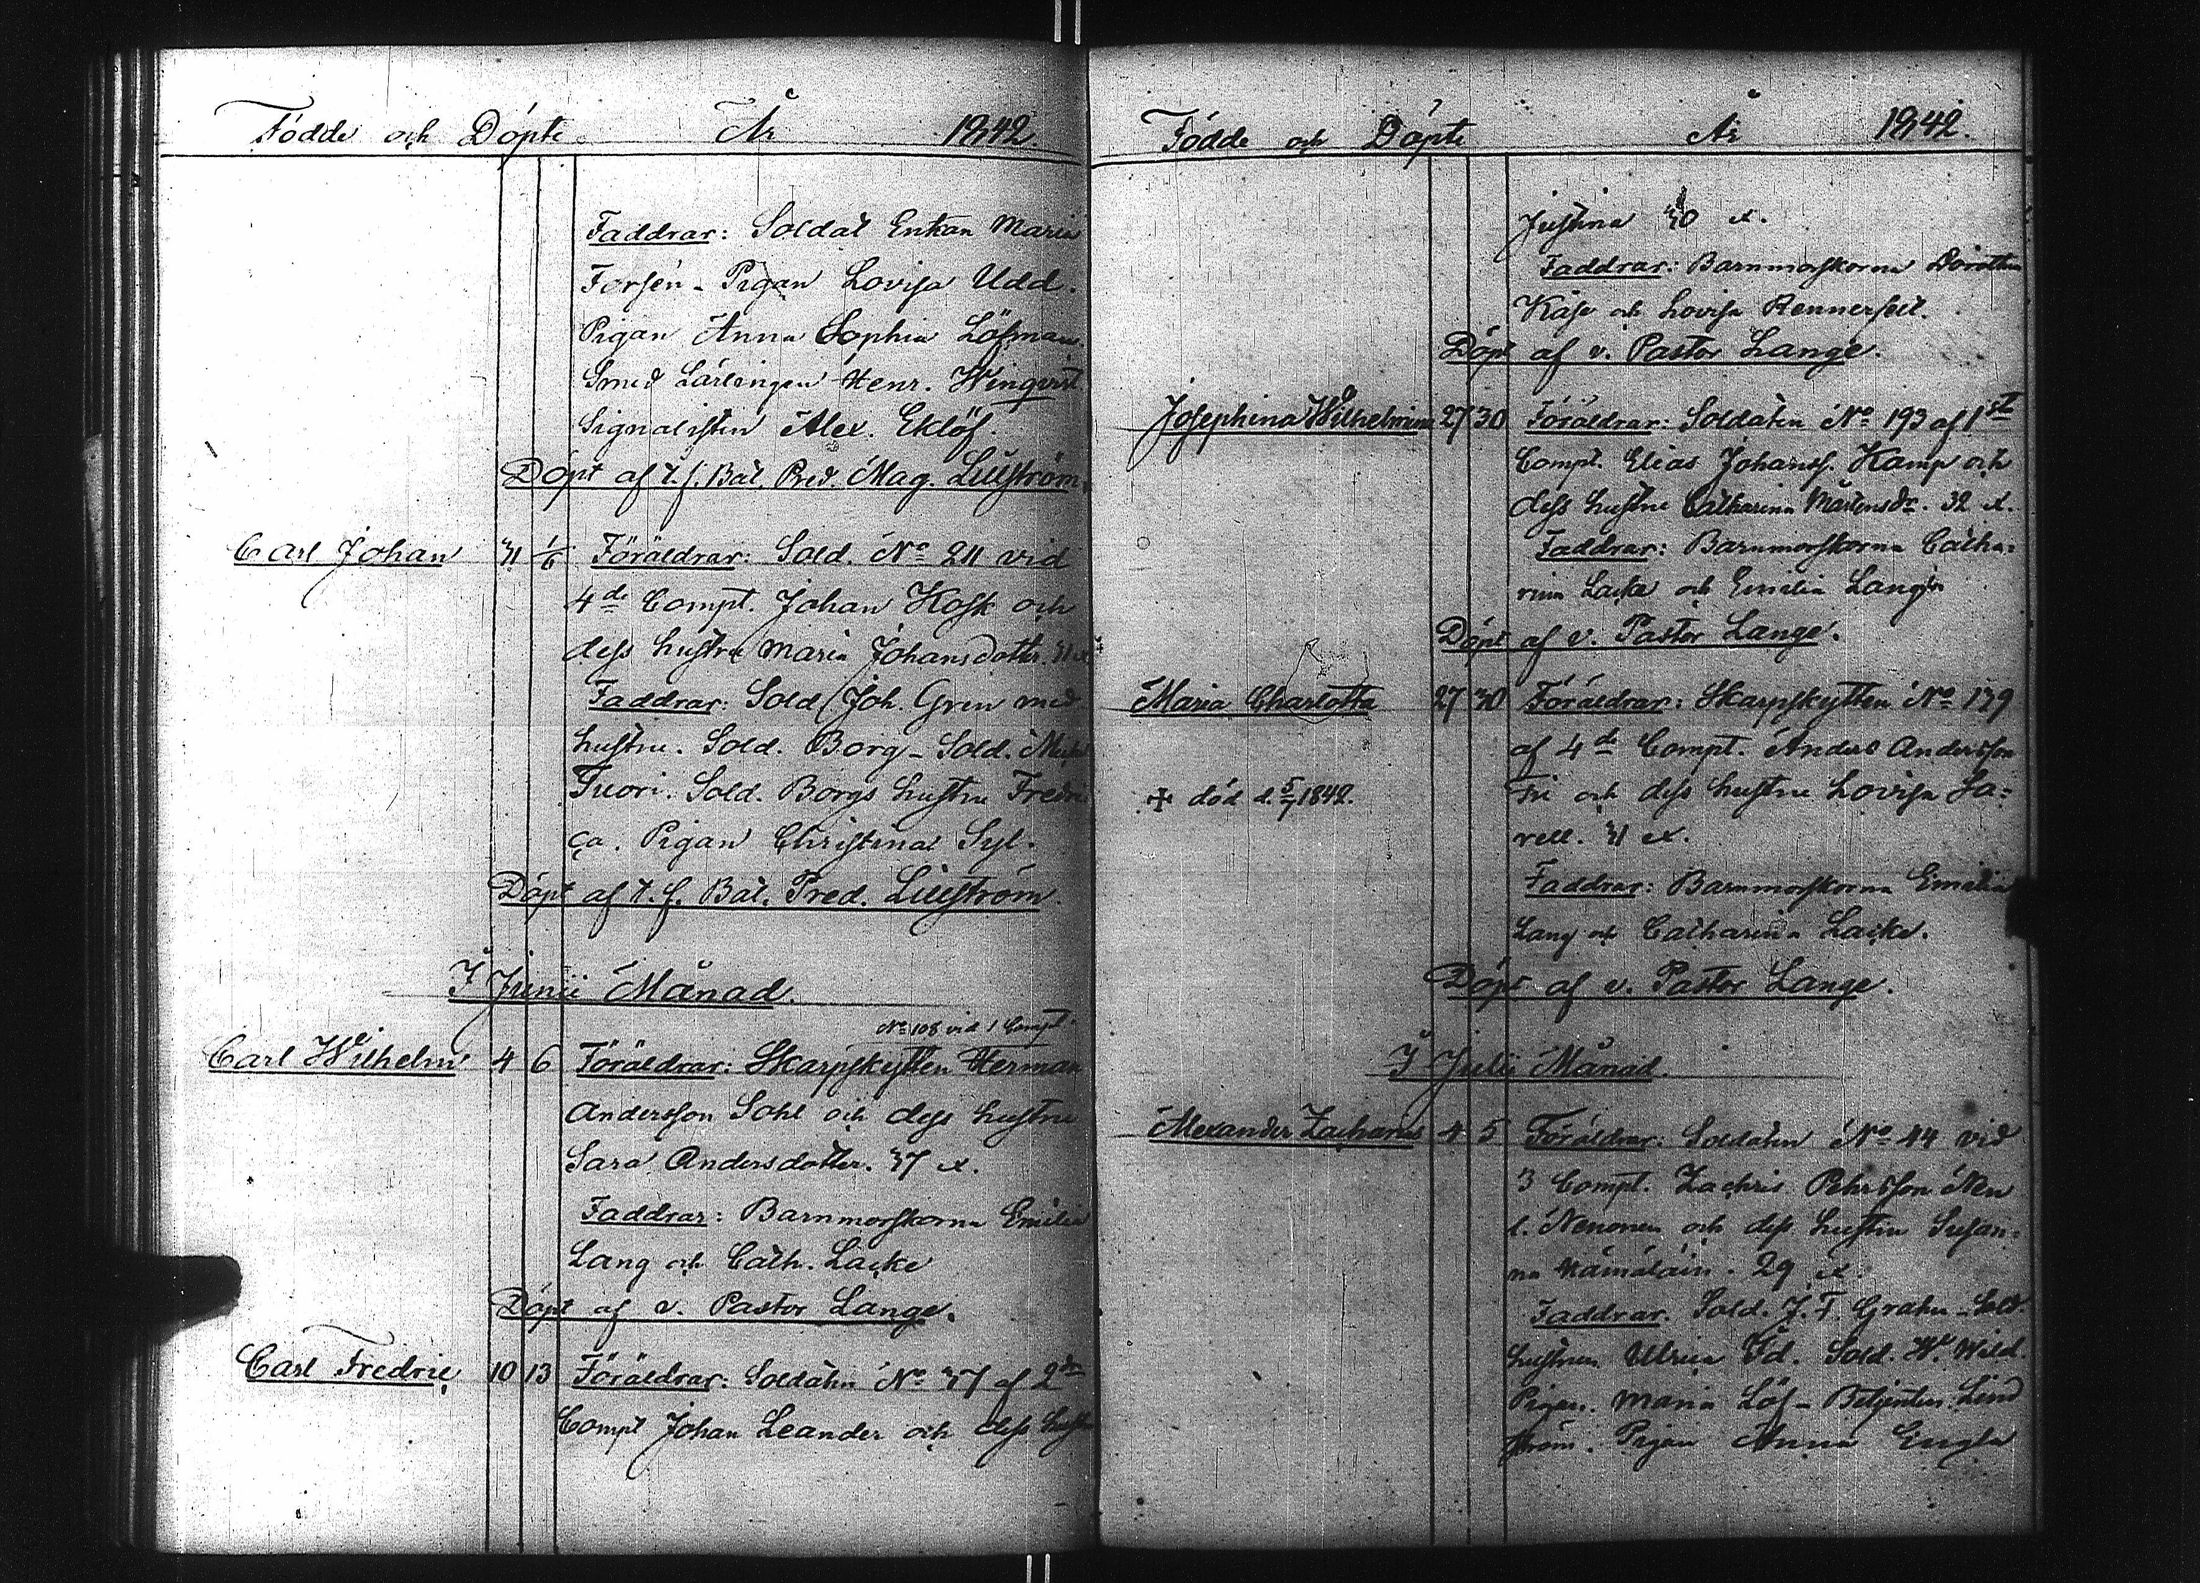 Födde och Döpte År 1842.
Faddrar: Soldat Enkan Maria
Forsén - Pigan Lovisa Udd.
Pigan Anna Sophia Löfman.
Smed Lärlingen Henr. Winqvist
Signalisten Alex. Eklöf.
Döpt af t. f. Bat. Pred. Mag. Liljström.
Carl Johan 31 1/6 Föräldrar: Sold. No 211 vid
4de Compt. Johan Kosk och
dess hustru Maria Johansdotter. 31
Faddrar: Sold Joh. Gren med
hustru. Sold. Borg - Sold.
Tuori. Sold. Borgs hustru Fredri
ca. Pigan Christina Syl.
Döpt af t. f. Bat. Pred. Liljström.
I Junii Månad.
No 108 vid 1 Compt.
Carl Wilhelm 4 6 Föräldrar: Skarpskytten Herman
Andersson Sohl och dess hustru
Sara Andersdotter. 37 x.
Faddrar: Barnmorskorna Emilia
Lang och Cath. Lacke
Döpt af v. Pastor Lange.
Carl Fredric 10 13 Föräldrar: Soldaten No 37 af 2dra
Compt Johan Leander och dess hustru
Födde och Döpte År 1842.
Justina 30 x.
Faddrar: Barnmorskorna Dorothea
Kåse och Lovisa Rennerfelt.
Döpt af v. Pastor Lange.
Josephina Wilhelmina 27 30 Föräldrar: Soldaten No 193 af 1sta
Compt. Elias Johanss. Kamp och
dess hustru Catharina Mårtensdr. 32 x.
Faddrar: Barnmorskorna Catha=
rina Lacke och Emilia Lang
Döpt af v. Pastor Lange.
Maria Charlotta 27 30 Föräldrar: Skarpskytten No 139
af 4de Compt. Anders Andersson
Fri och dess hustru Lovisa Sa=
rell. 31 x.
+ död d. 5/7 1842.
Faddrar: Barnmorskorna Emilia
Lang och Catharina Lacke.
Döpt af v. Pastor Lange.
I Julii Månad.
Alexander Zacharias 4 5 Föräldrar: Soldaten No 44 vid
3 Compt. Zachris Pehrsson
l. Nenonen och dess hustru Susan=
na Hämäläin. 29 x.
Faddrar. Sold. J. F. Grahn - Sold.
hustrun Ulrica Id. Sold. W. Wild.
Pigan. Maria Löf - Betjenten Lind
ström. Pigan Anna Engla